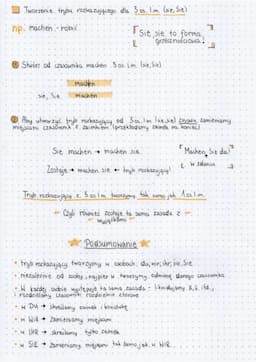 Tworzenie trybu rozkazującego dla 3 os. l.m (sie, Sie)
np. machen - robić
Sie, sie to forma
grzecznościowa!
Stwórz od czasownika machen 3 os. l.m (sie, Sie)
machen
sie, Sie machen
Aby utworzyć tryb rozkazujący od 3 os. l.m (sie, Sie) zamieniamy
miejscami czasownik z zaimkiem (przekładamy zaimek na koniec)
Sie machen → machen sie
Machen Sie da!
w zdaniu
Zostaje → machen sie ← tryb rozkazujący!
Tryb rozkazujący z 3 os. l.m tworzymy tak samo jak 1 os. l.m
Czyli również zostaje ta sama zasada z
wyjątkami
Podsumowanie
• tryb rozkazujący tworzymy w osobach: du, wir, ihr, sie, Sie
• niezależnie od osoby, najpierw tworzymy odmianę danego czasownika
• w każdej osobie występuje ta sama zasada -
rozdzielamy czasowniki rozdzielnie złożone
• w DU → skreślamy zaimek i końcówkę
• w WIR → zamieniamy miejscami
• w IHR → skreślamy tylko zaimek
• w SIE → zamieniamy miejscami tak samo, jak w WIR